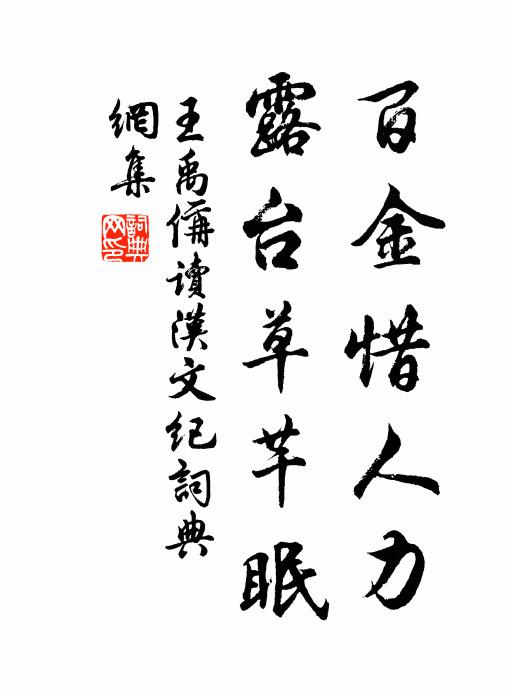 百金惜人力
露台草芊眠
王禹偁讀漢文紀詞典
網集
詞典
网印